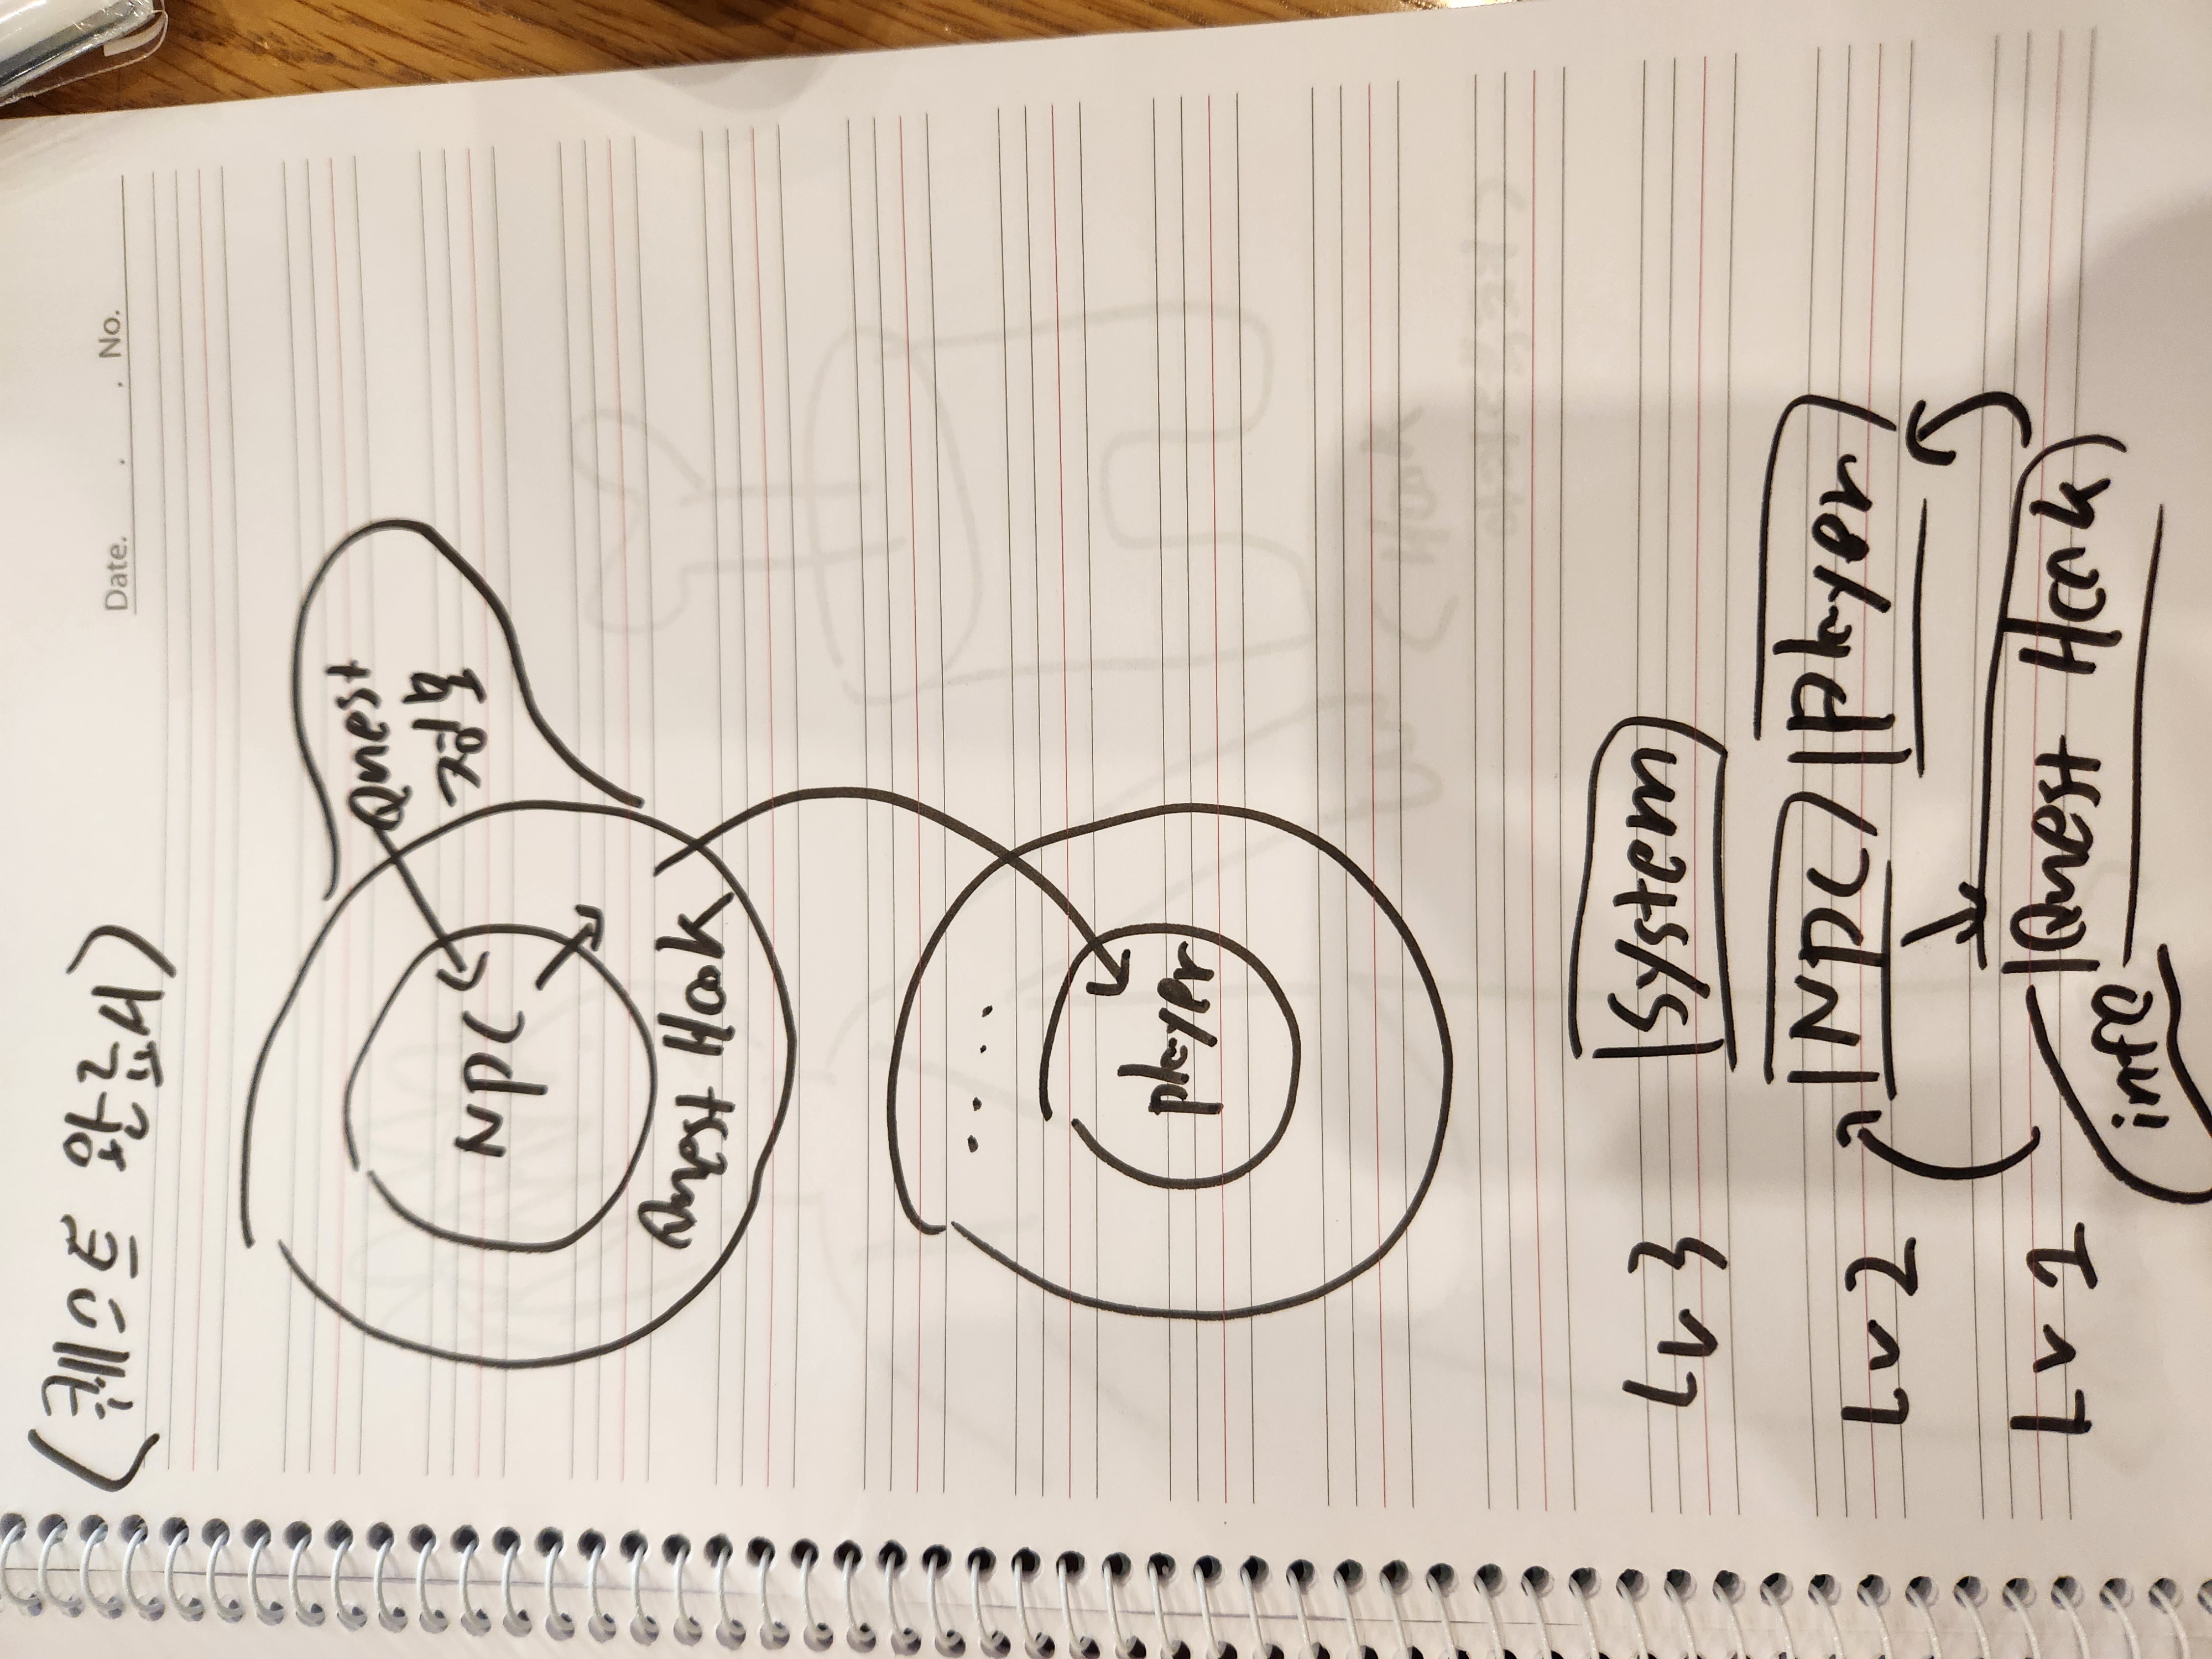 (퀘스트 완료시)
Date. . . No.
Quest
정보
NPC
Quest Hook
....
player
Lv 3 System
Lv 2 NPC player
Lv 1 Quest Hook
info